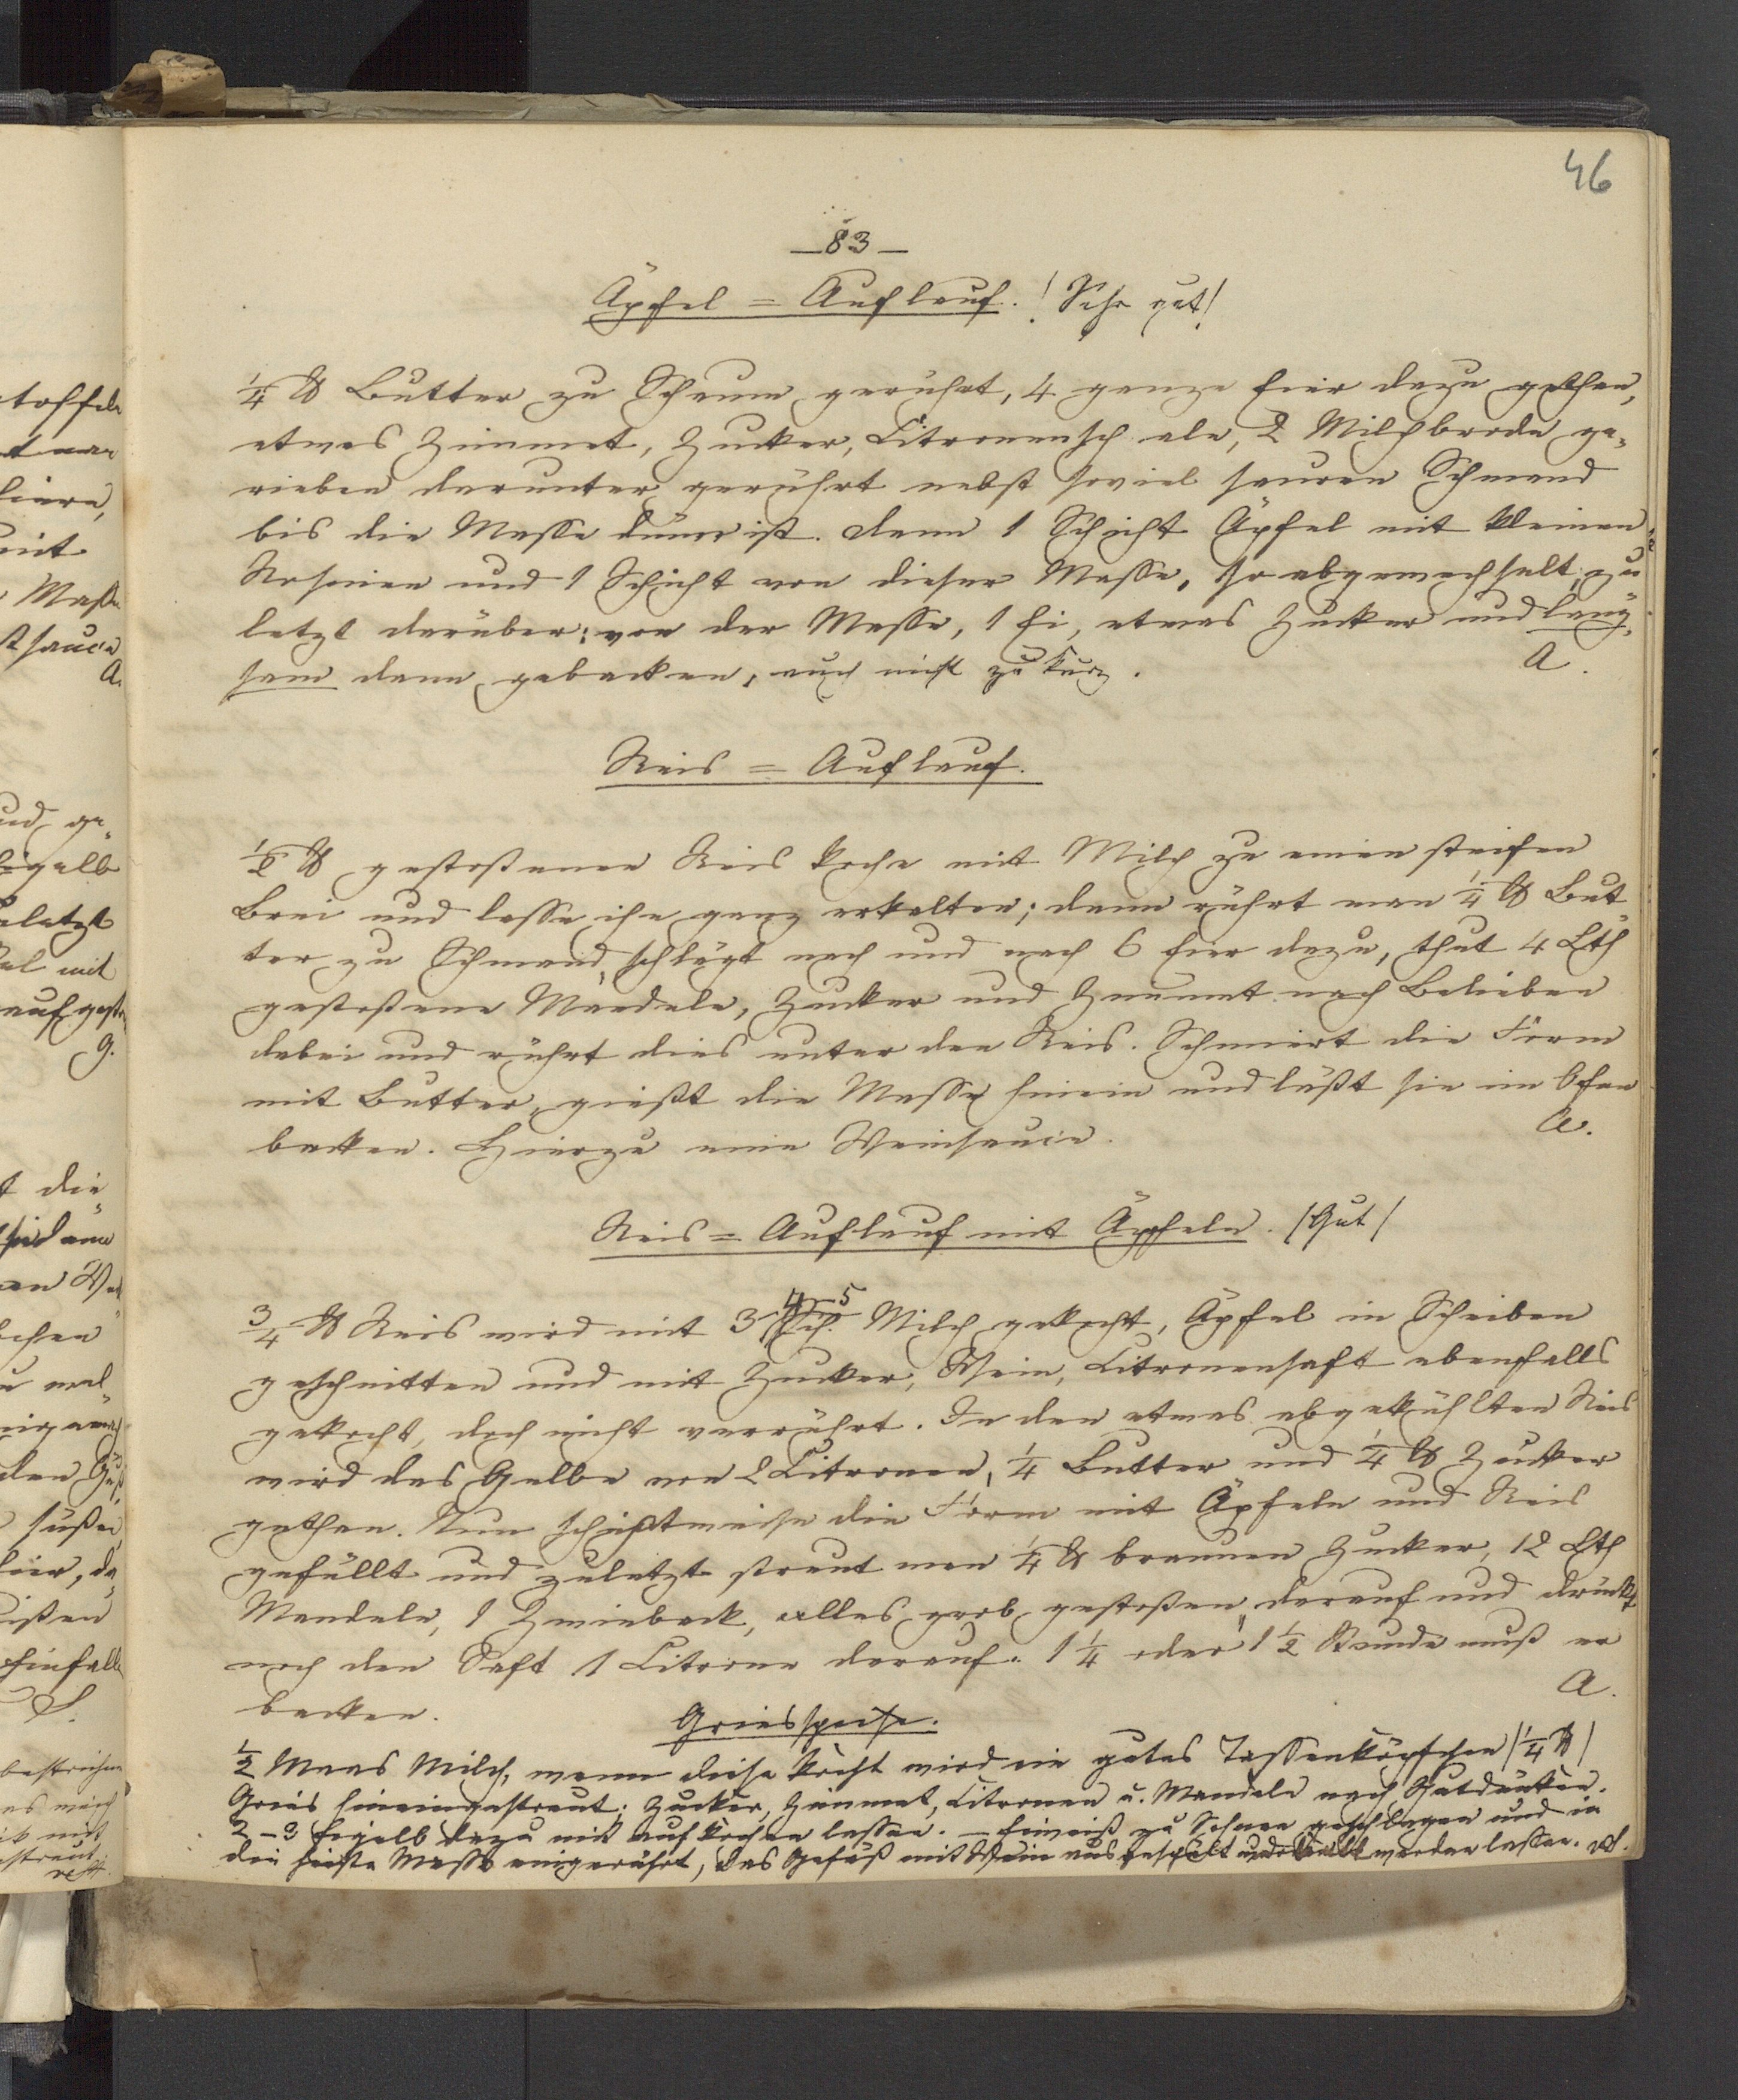 46
— 83 —
Äpfel = Auflauf. ! Sehr gut!
¼ ℔ Butter zu Schaum gerührt, 4 ganze Eier dazu gethan,
etwas Zimmet, Zucker, Citronenschale, 2 Milchbrode ge-
rieben darunter gerührt nebst soviel sauren Schmand
bis die Masse dünn ist. dann 1 Schicht Äpfel mit kleinen
Rosinen und 1 Schicht von dieser Masse, so abgewechselt, zu
letzt darüber: von der Masse, 1 Ei, etwas Zucker und lang-
sam dann gebacken, auch nicht zu kurz.
A.
Reis = Auflauf.
½ ℔ gestoßenen Reis koche mit Milch zu einen steifen
Brei und lasse ihn ganz erkalten; dann rührt man ¼ ℔ But
ter zu Schmand, schlägt nach und nach 6 Eier dazu, thut 4 Lth
gestoßene Mandeln, Zucker und Zimmet nach Belieben
dabei und rührt dies unter den Reis. Schmiert die Form
mit Butter, gießt die Masse hinein und läßt sie im Ofen
backen. Hierzu eine Weinsauce.
A.
Reis = Auflauf mit Äpfeln. /Gut/
¾ ℔ Reis wird mit 3 4-5 Sch. Milch gekocht, Äpfel in Scheiben
geschnitten und mit Zucker, Wein, Citronensaft ebenfalls
gekocht, doch nicht verrührt. In den etwas abgekühlten Reis
wird das Gelbe von 2 Citronen, ¼ Butter und ¼ ℔ Zucker
gethan. Nun schichtweise die Form mit Äpfeln und Reis
gefüllt und zuletzt streut man ¼ ℔ braunen Zucker, 12 Lth
Mandeln, 1 Zwieback, alles grob gestoßen, darauf und drückt
noch den Saft 1 Citrone darauf. 1 ¼ oder 1 ½ Stunde muß er
backen.
A.
Griesspeise.
½ Maas Milch, wenn diese kocht wird ein gutes Tassenköpfchen /¼ ℔/
Gries hineingestreut; Zucker, Zimmet, Citronen u. Mandeln nach Gutdünken.
2-3 Eigelb dazu mit aufkochen lassen. — Eiweiß zu Schnee geschlagen und in
die heiße Masse eingerührt, das Gefäß mit Wein ausgespült und kalt werden lassen.